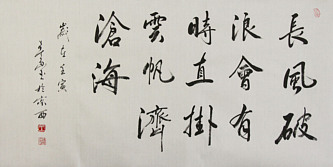 長風破
浪會有
時直掛
雲帆濟
滄海
歲在壬寅